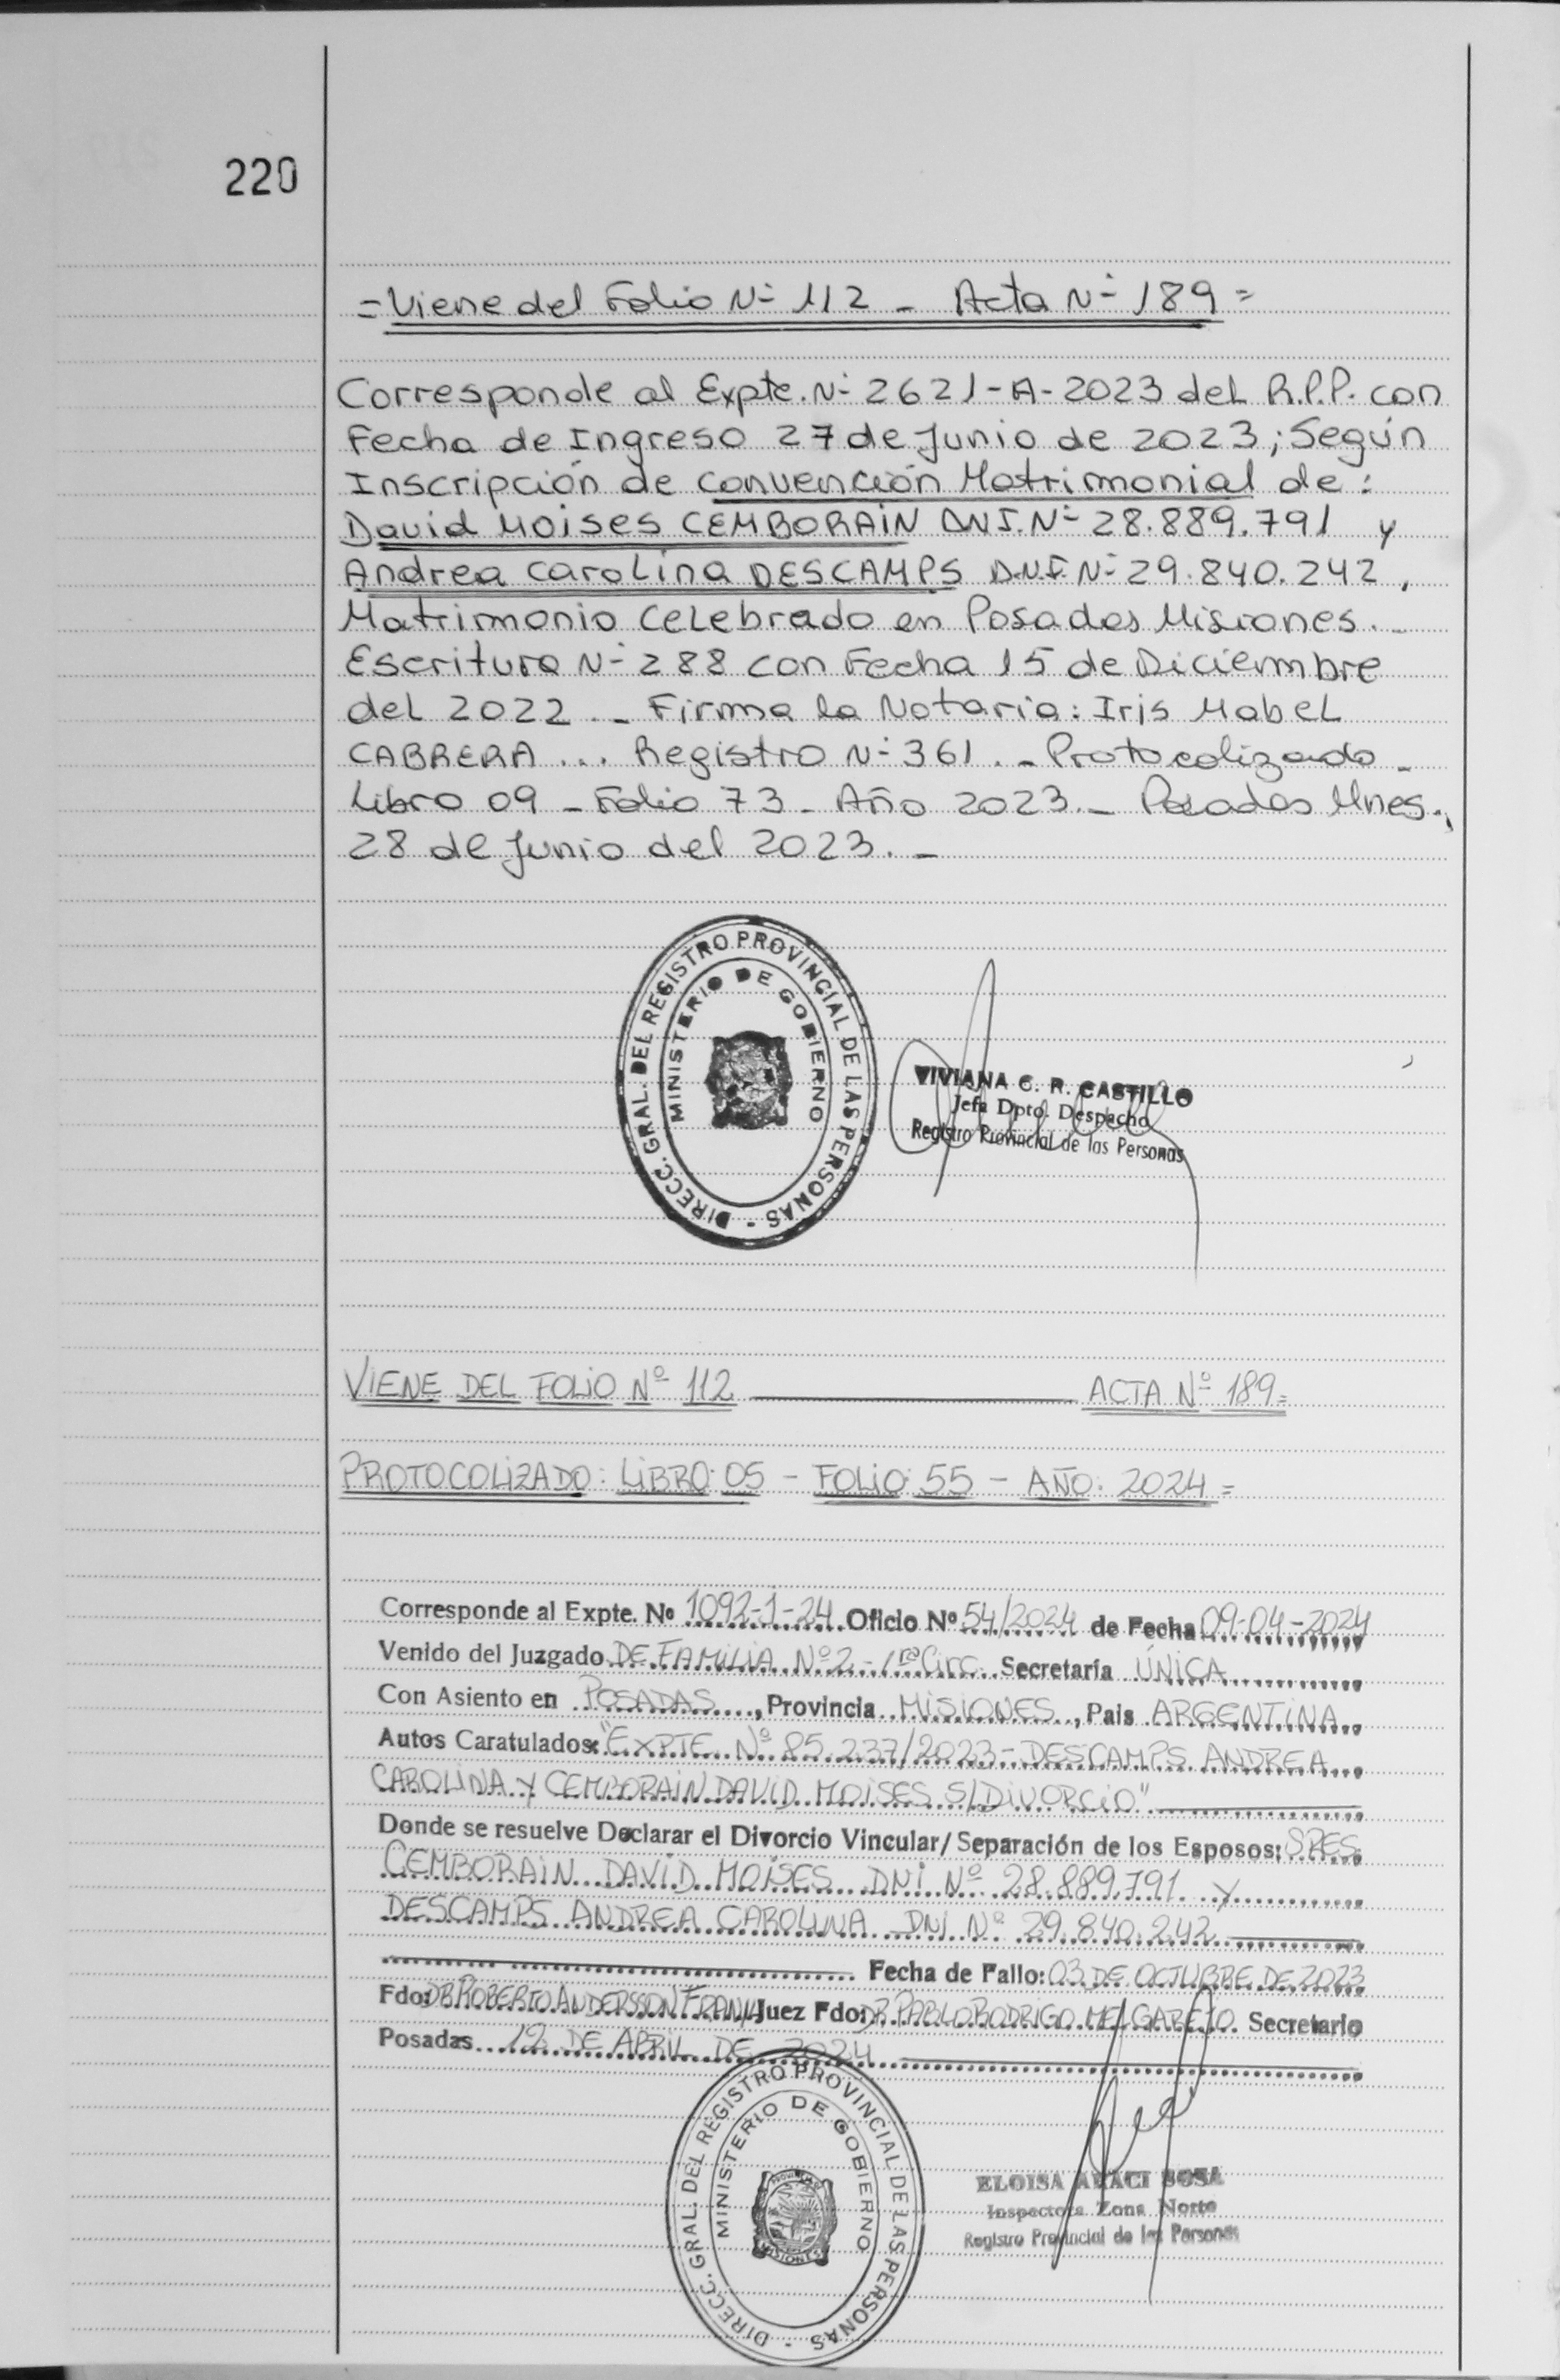 220
= Viene del Folio Nº 112 - Acta Nº 189 =
Corresponde al Expte. Nº 2621-A-2023 del R.P.P. con
Fecha de Ingreso 27 de Junio de 2023; Según
Inscripción de Convención Matrimonial de:
David Moises CEMBORAIN DNI. Nº 28.889.791 y
Andrea Carolina DESCAMPS D.N.I. Nº 29.840.242,
Matrimonio Celebrado en Posadas Misiones. _
Escritura Nº 288 con Fecha 15 de Diciembre
del 2022 . _ Firma la Notaria: Iris Mabel
CABRERA ... Registro Nº 361 . _ Protocolizado _
Libro 09 _ Folio 73 _ Año 2023. _ Posadas Mnes.,
28 de Junio del 2023. _
DIRECC. GRAL. DEL REGISTRO PROVINCIAL DE LAS PERSONAS -
MINISTERIO DE GOBIERNO
VIVIANA C. R. CASTILLO
Jefa Dpto. Despacho
Registro Provincial de las Personas
VIENE DEL FOLIO Nº 112 ACTA Nº 189=
PROTOCOLIZADO: LIBRO: 05 - FOLIO: 55 - AÑO: 2024 =
Corresponde al Expte. Nº 1092-1-24 Oficio Nº 54/2024 de Fecha 09-04-2024
Venido del Juzgado DE FAMILIA Nº 2 - 1ra Circ. Secretaría ÚNICA
Con Asiento en POSADAS, Provincia MISIONES, Pais ARGENTINA
Autos Caratulados: "EXPTE Nº 85.237/2023 - DESCAMPS ANDREA
CAROLINA Y CEMBORAIN DAVID MOISES S/DIVORCIO"
Donde se resuelve Declarar el Divorcio Vincular/Separación de los Esposos: SRES
CEMBORAIN DAVID MOISES DNI Nº 28.889.791 Y
DESCAMPS ANDREA CAROLINA DNI Nº 29.840.242
Fecha de Fallo: 03 DE OCTUBRE DE 2023
Fdo: DR ROBERTO ANDERSSON FRANK Juez Fdo: DR PABLO RODRIGO MELGAREJO Secretario
Posadas 12 DE ABRIL DE 2024
DIRECC. GRAL. DEL REGISTRO PROVINCIAL DE LAS PERSONAS -
MINISTERIO DE GOBIERNO
MISIONES
ELOISA ARACI SOSA
Inspectora Zona Norte
Registro Provincial de las Personas